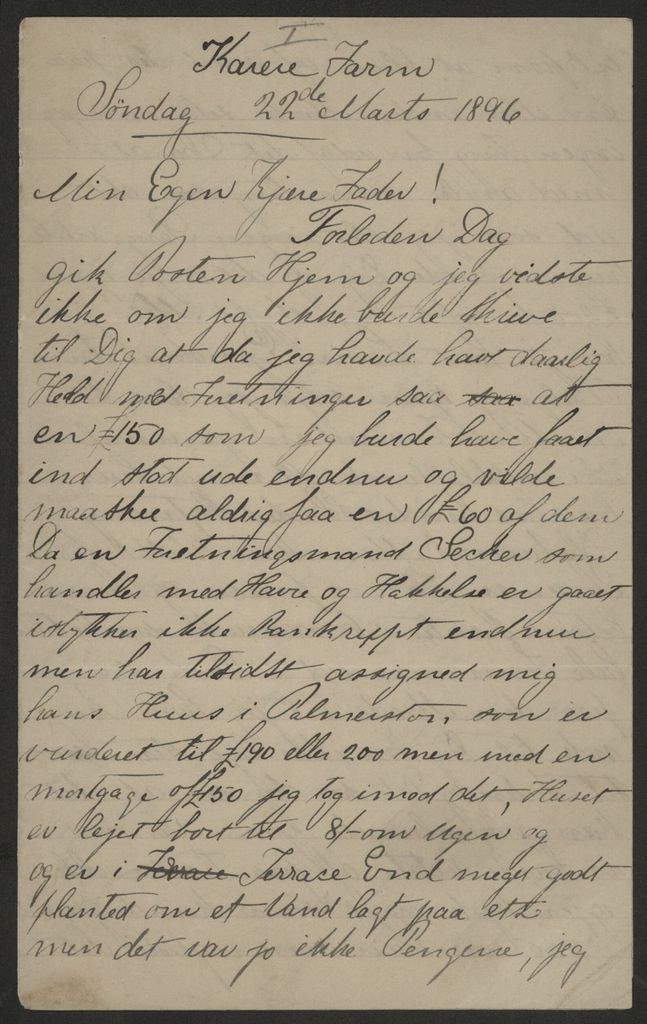 I
Karere Farm
Søndag 22de Marts 1896
Min Egen Kjære Fader!
Forleden Dag
gik Posten Hjem og jeg vidste
ikke om jeg ikke burde skrive
til Dig at da jeg havde havt daarlig
Held med Forretninger saa saa at
en £150 som jeg burde have faaet
ind stod ude endnu og vilde
maaskee aldrig faa en £60 af dem
Da en Forretningsmand Secker som
handler med Havre og Hakkelse er gaaet
istykker ikke Bankrupt endnu
men har tilsidst assigned mig
hans Huus i Palmerston, som er
vurderet til £190 eller 200 men med en
mortgage of £150 jeg tog imod det, Huset
er lejet bort til 8/- om Ugen og
og er i Terrace Terrace End meget godt
planted om et Vand lagt paa etc
men det var jo ikke Pengene, jeg